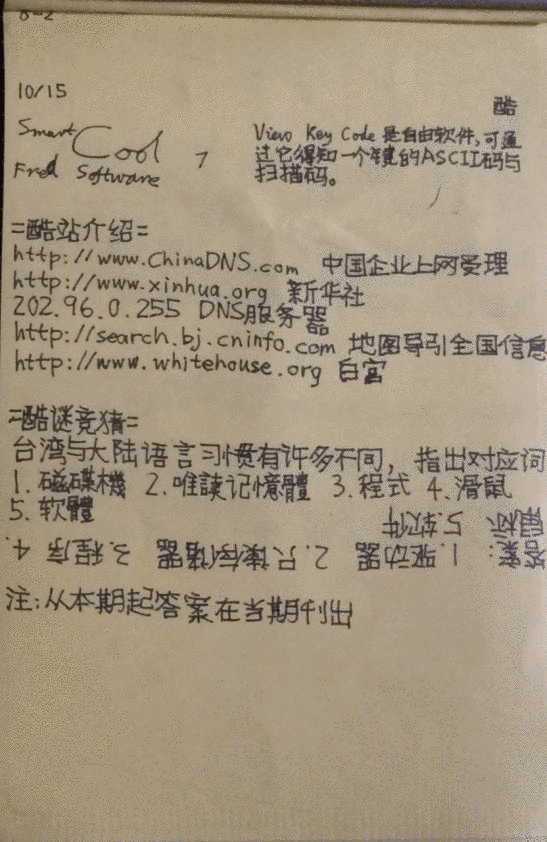 8-2
10/15
酷
Smart Cool
Fred Software 7
View Key Code 是自由软件,可通
过它得知一个键的ASCII码与
扫描码。
=酷站介绍=
http://www.ChinaDNS.com 中国企业上网受理
http://www.xinhua.org 新华社
202.96.0.255 DNS服务器
http://search.bj.cninfo.com 地图导引全国信息
http://www.whitehouse.org 白宫
=酷谜竞猜=
台湾与大陆语言习惯有许多不同,指出对应词
1.磁碟機 2.唯讀记憶體 3.程式 4.滑鼠
5.软體
答案:1.驱动器 2.只读存储器 3.程序 4.
鼠标 5.软件
注:从本期起答案在当期刊出